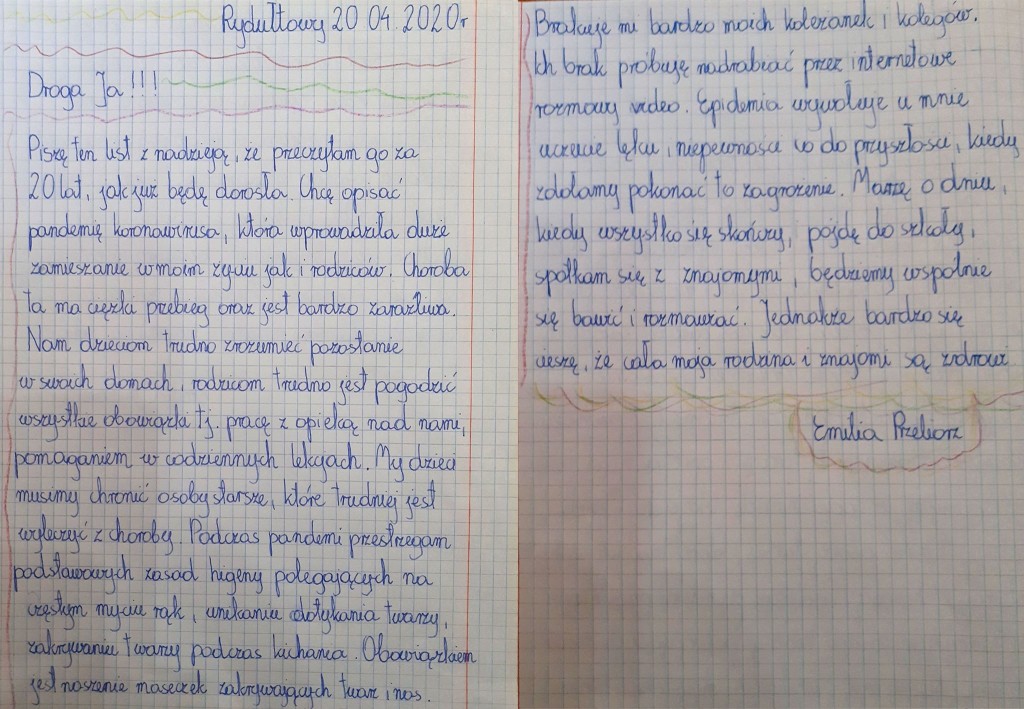 Rydułtowy 20 04. 2020r
Droga Ja!!!
Piszę ten list z nadzieją, że przeczytam go za
20 lat, jak już będę dorosła. Chcę opisać
pandemię koronawirusa, która wprowadziła duże
zamieszanie w moim życiu jak i rodziców. Choroba
ta ma ciężki przebieg oraz jest bardzo zaraźliwa.
Nam dzieciom trudno zrozumieć pozostanie
w swoich domach, rodzicom trudno jest pogodzić
wszystkie obowiązki tj. pracę z opieką nad nami,
pomaganiem w codziennych lekcjach. My dzieci
musimy chronić osoby starsze, które trudniej jest
wyleczyć z choroby. Podczas pandemi przestrzegam
podstawowych zasad higeny polegających na
częstym myciu rąk, unikaniu dotykania twarzy,
zakrywaniu twarzy podczas kichania. Obowiązkiem
jest noszenie maseczek zakrywających twarz i nos.
Brakuje mi bardzo moich koleżanek i kolegów.
Ich brak próbuję nadrabiać przez internetowe
rozmowy video. Epidemia wywołuje u mnie
uczucie lęku, niepewności co do przyszłości, kiedy
zdołamy pokonać to zagrożenie. Marzę o dniu,
kiedy wszystko się skończy, pójdę do szkoły,
spotkam się z znajomymi, będziemy wspólnie
się bawić i rozmawiać. Jednakże bardzo się
cieszę, że cała moja rodzina i znajomi są zdrowi
Emilia Przeliorz